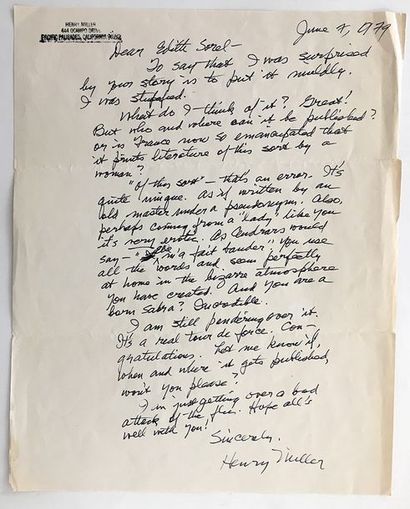 HENRY MILLER
444 OCAMPO DRIVE
PACIFIC PALISADES, CALIFORNIA 90272
June 4, 1979
Dear Edith Sorel—
To say that I was surprised
by your story is to put it mildly.
I was stupefied.
What do I think of it? Great!
But who and where can it be published?
or is France now so emancipated that
it prints literature of this sort by a
woman?
"Of this sort"—that's an error. It's
quite unique. As if written by an
old master under a pseudonym. Also,
perhaps coming from a 'lady' like you
it's very erotic. As Cendrars would
say— "m'a fait bander" You use
all the words and seem perfectly
at home in the bizarre atmosphere
you have created. And you are a
born Sabra? Incredible.
I am still pondering over it.
It's a real tour de force. Con-
gratulations. Let me know if,
when and where it gets published,
won't you please?
I'm just getting over a bad
attack of the flu. Hope all's
well with you!
Sincerely,
Henry Miller